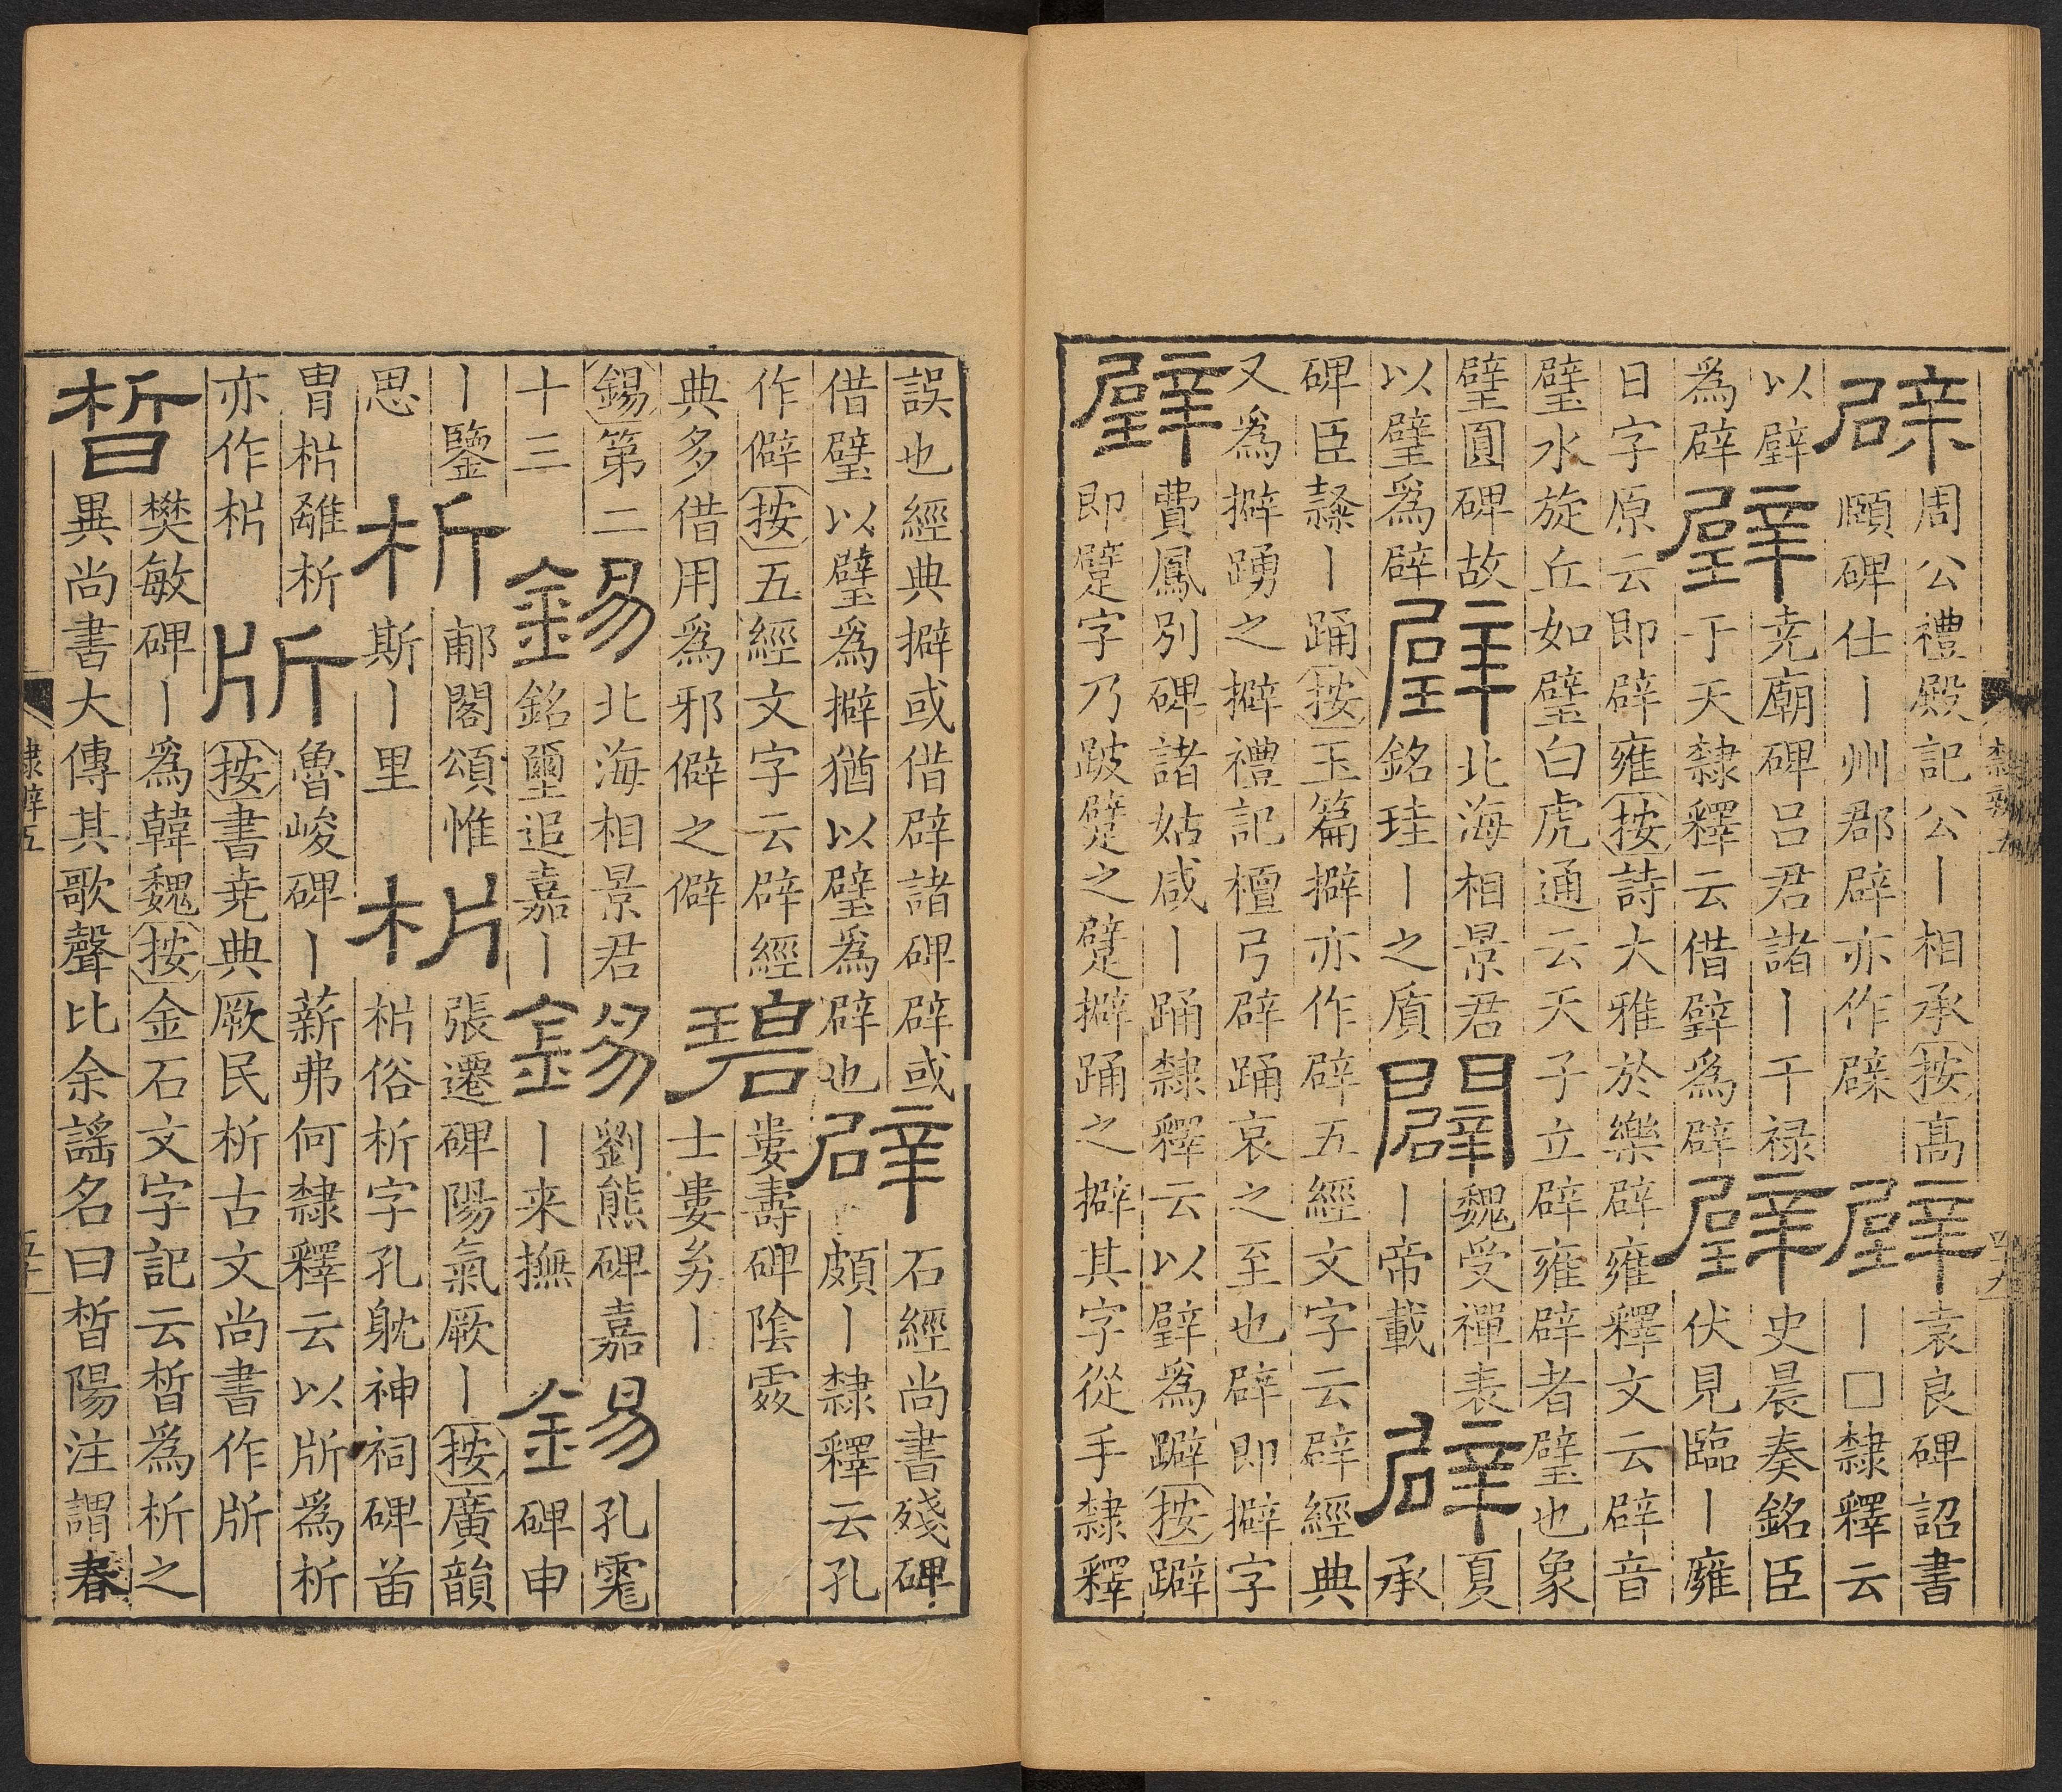 辟
周公禮殿記公丨相承按髙
頤碑仕丨州郡辟亦作辟
璧
袁良碑詔書
丨□隸釋云
以璧
為辟
璧
尭廟碑吕君諸丨干禄
于天隸釋云借璧為辟
璧
史晨奏銘臣
伏見臨丨雍
日字原云即辟雍按詩大雅於樂辟雍釋文云辟音
璧水旋丘如璧白虎通云天子立辟雍辟者璧也象
璧圓碑故
以璧為辟
璧
北海相景君
銘珪丨之質
闢
魏受禪表
丨帝載
辟
夏
承
碑臣隸丨踊按玉篇擗亦作辟五經文字云辟經典
又為擗踴之擗禮記檀弓辟踊哀之至也辟即擗字
璧
費鳳別碑諸姑咸丨踊隸釋云以璧為躃按躃
即躄字乃跛躄之躄擗踊之擗其字從手隸釋
隸辨五
誤也經典擗或借辟諸碑辟或
借璧以璧為擗猶以璧為辟也
辟
石經尚書殘碑
頗丨隸釋云孔
作僻按五經文字云辟經
典多借用為邪僻之僻
碧
婁壽碑陰處
士婁夯丨
錫第二
十三
錫
北海相景君
銘璽追嘉丨
錫
劉熊碑嘉
丨来撫
錫
孔宛
碑申
丨鑒
思
析
郙閣頌惟
斯丨里
枿
張遷碑陽氣厥丨按廣韻
枿俗析字孔躭神祠碑苗
胄枿離析
亦作枿
斨
魯峻碑丨薪弗何隸釋云以斨為析
按書尭典厥民析古文尚書作斨
晳
樊敏碑丨為韓魏按金石文字記云晳為析之
異尚書大傳其歌聲比余謡名曰晳陽注謂春
隸辨五